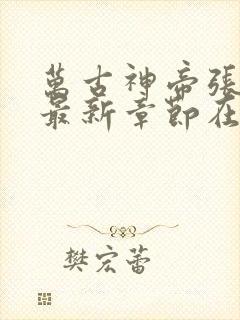 萬古神帝張
最新章節在
樊宏蕾